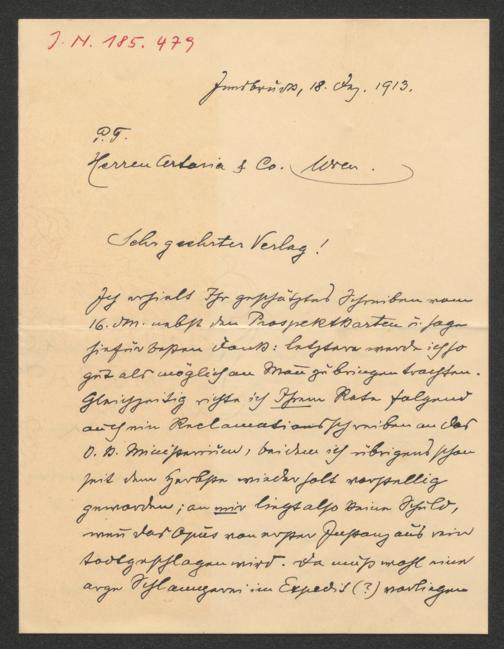 J. N. 185.479
Innsbruck, 18. Dez. 1913.
P. T.
Herren Artaria & Co. Wien.
Sehr geehrter Verlag!
Ich erhielt Ihr geschätztes Schreiben vom
16. dM. nebst den Prospektkarten u. sage
hiefür besten Dank: letztere werde ich so
gut als möglich an Mann zu bringen trachten.
Gleichzeitig richte ich Ihrem Rate folgend
auch ein Reclamationsschreiben an das
Ministerium, bei dem ich übrigens schon
seit dem Herbste wiederholt vorstellig
geworden; an mir liegt also keine Schuld,
wenn das Opus von erster Instanz aus rein
todtgeschlagen wird. Da muß wohl eine
arge Schlamperei im Expedit (?) vorliegen